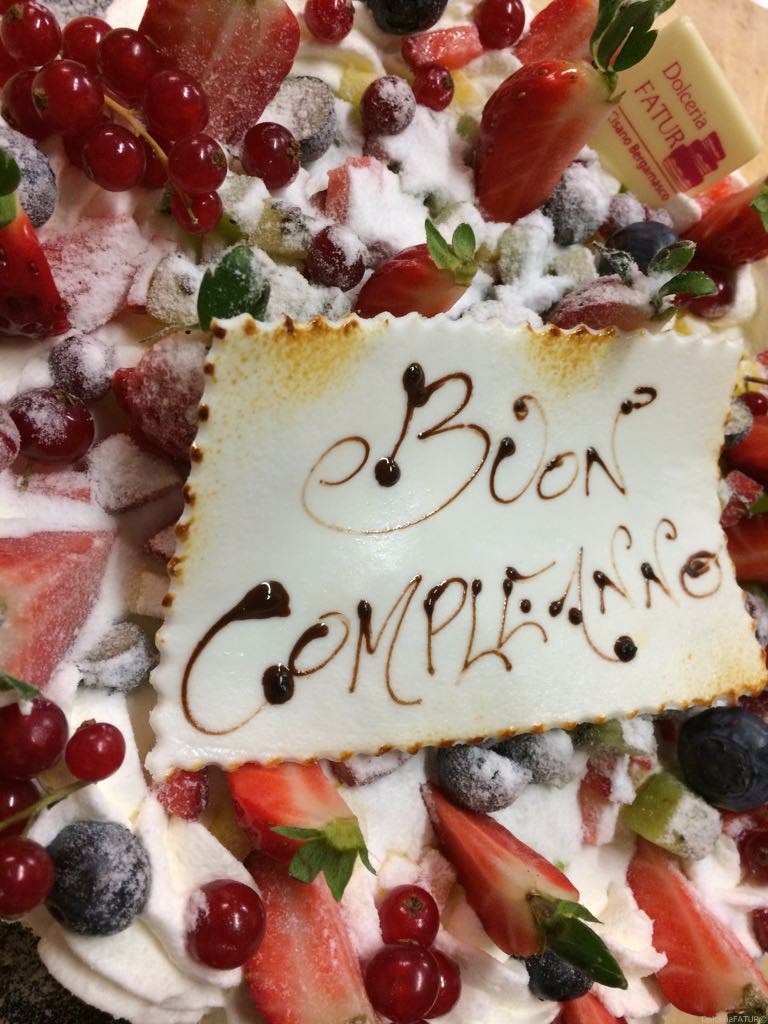 Dolceria
FATUR
Cisano Bergamasco
BUON
COMPLEANNO
DolceriaFATUR©